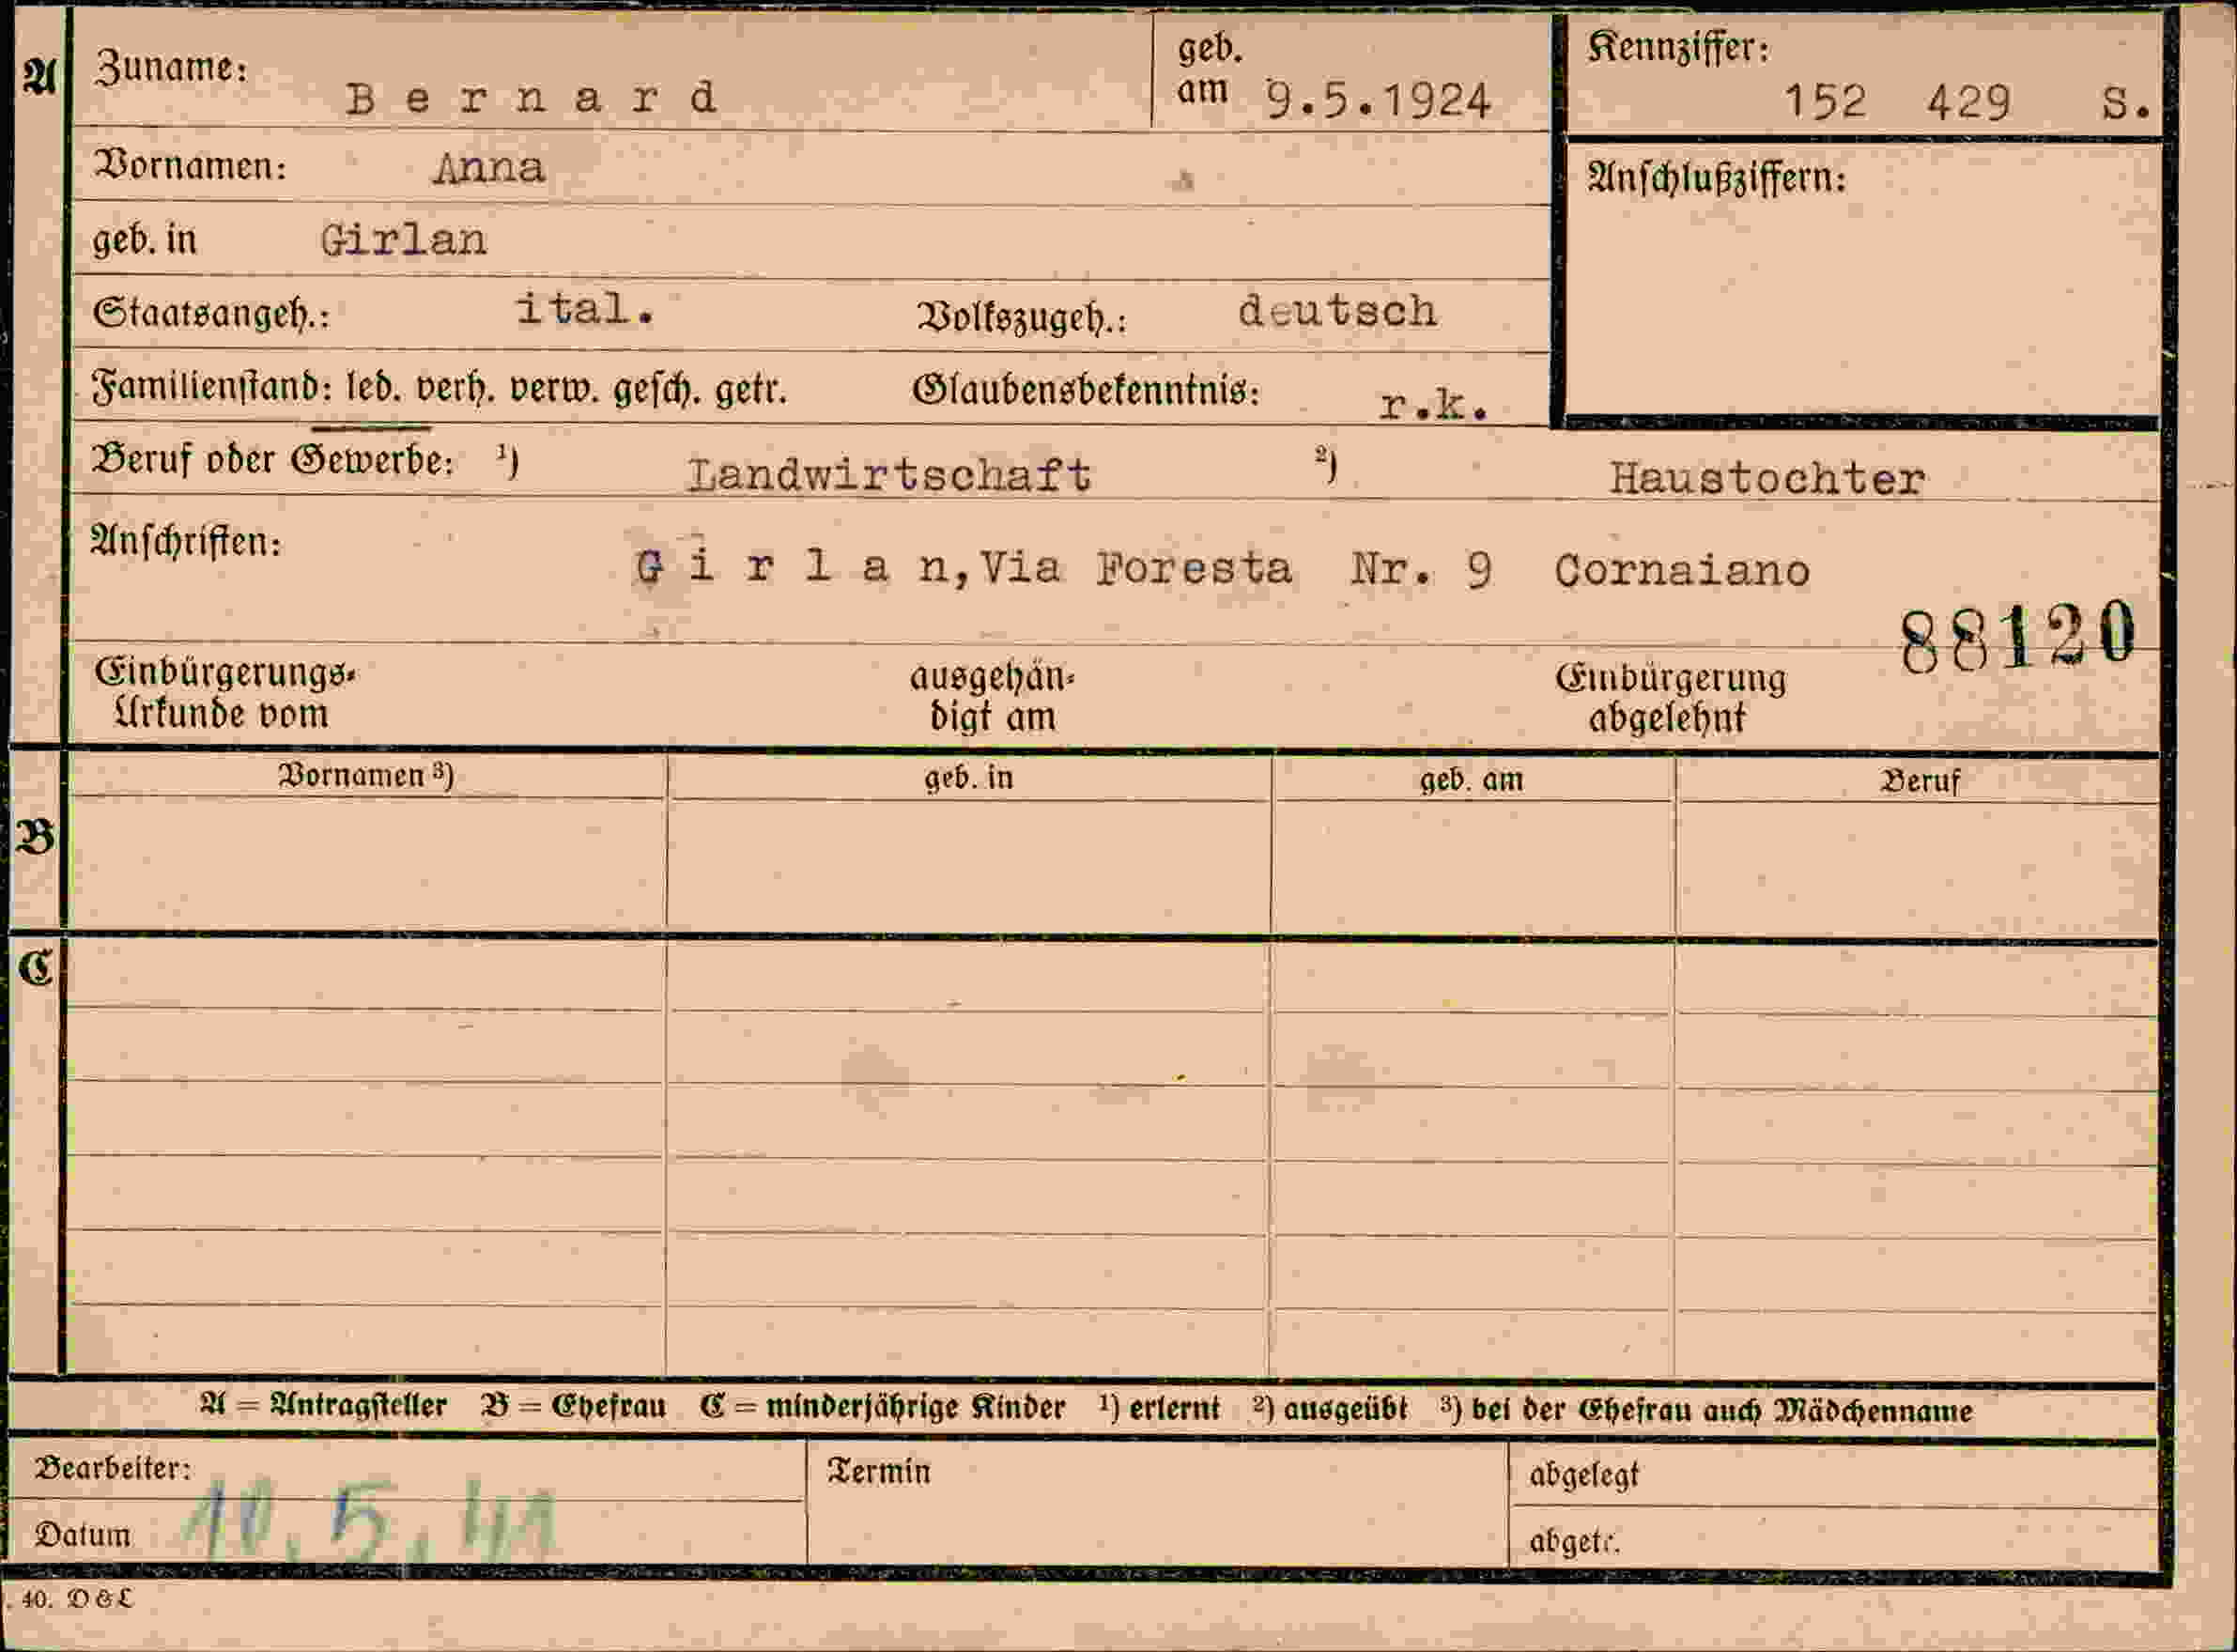 A Zuname: Bernard geb. am 9.5.1924 Kennziffer: 152 429 S.
Vornamen: Anna Anschlußziffern:
geb. in Girlan
Staatsangeh.: ital. Volkszugeh.: deutsch
Familienstand: led. verh. verw. gesch. getr. Glaubensbekenntnis: r.k.
Beruf oder Gewerbe: ¹) Landwirtschaft ²) Haustochter
Anschriften: Girlan, Via Foresta Nr. 9 Cornaiano
88120
Einbürgerungs- ausgehän- Einbürgerung
Urkunde vom digt am abgelehnt
Vornamen ³) geb. in geb. am Beruf
B
C
A = Antragsteller B = Ehefrau C = minderjährige Kinder ¹) erlernt ²) ausgeübt ³) bei der Ehefrau auch Mädchenname
Bearbeiter: Termin abgelegt
Datum 10.5.41 abgetr.
40. D&L